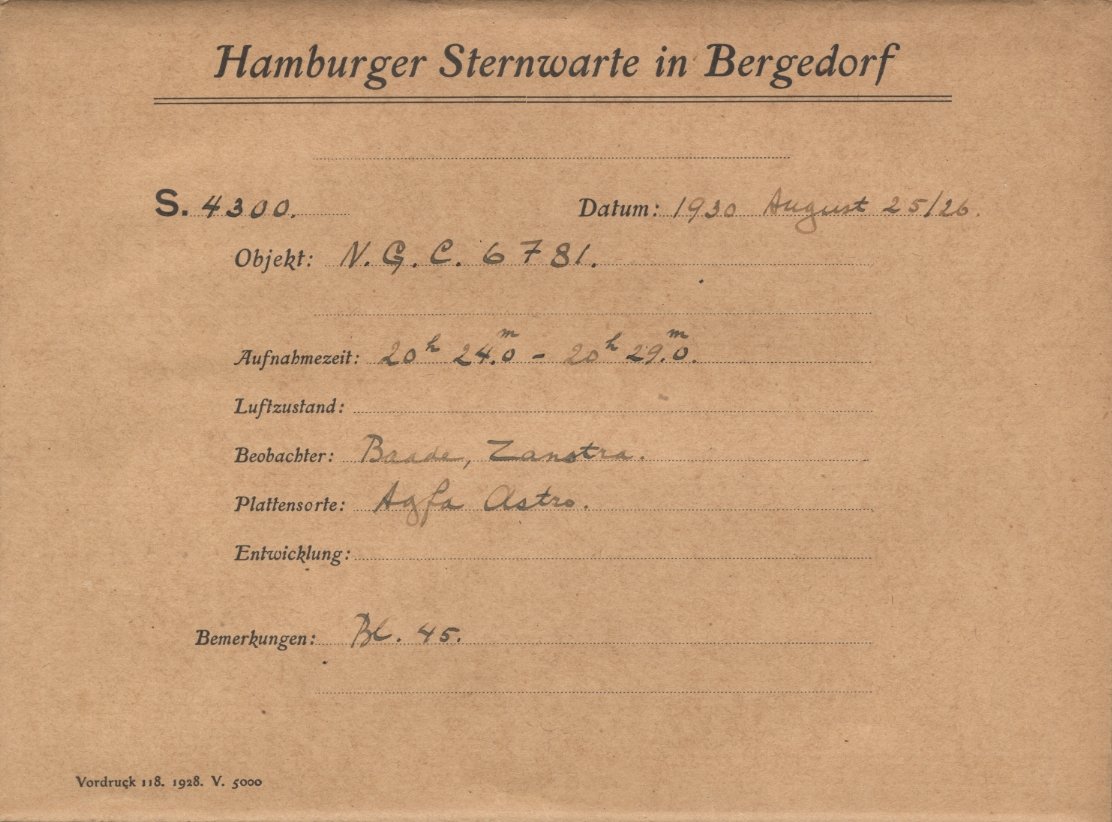 Hamburger Sternwarte in Bergedorf
S. 4300. Datum: 1930 August 25/26.
Objekt: N. G. C. 6781.
Aufnahmezeit: 20h 24.m0 - 20h 29.m0.
Luftzustand:
Beobachter: Baade, Zanstra.
Plattensorte: Agfa Astro.
Entwicklung:
Bemerkungen: Bl. 45.
Vordruck 118. 1928. V. 5000